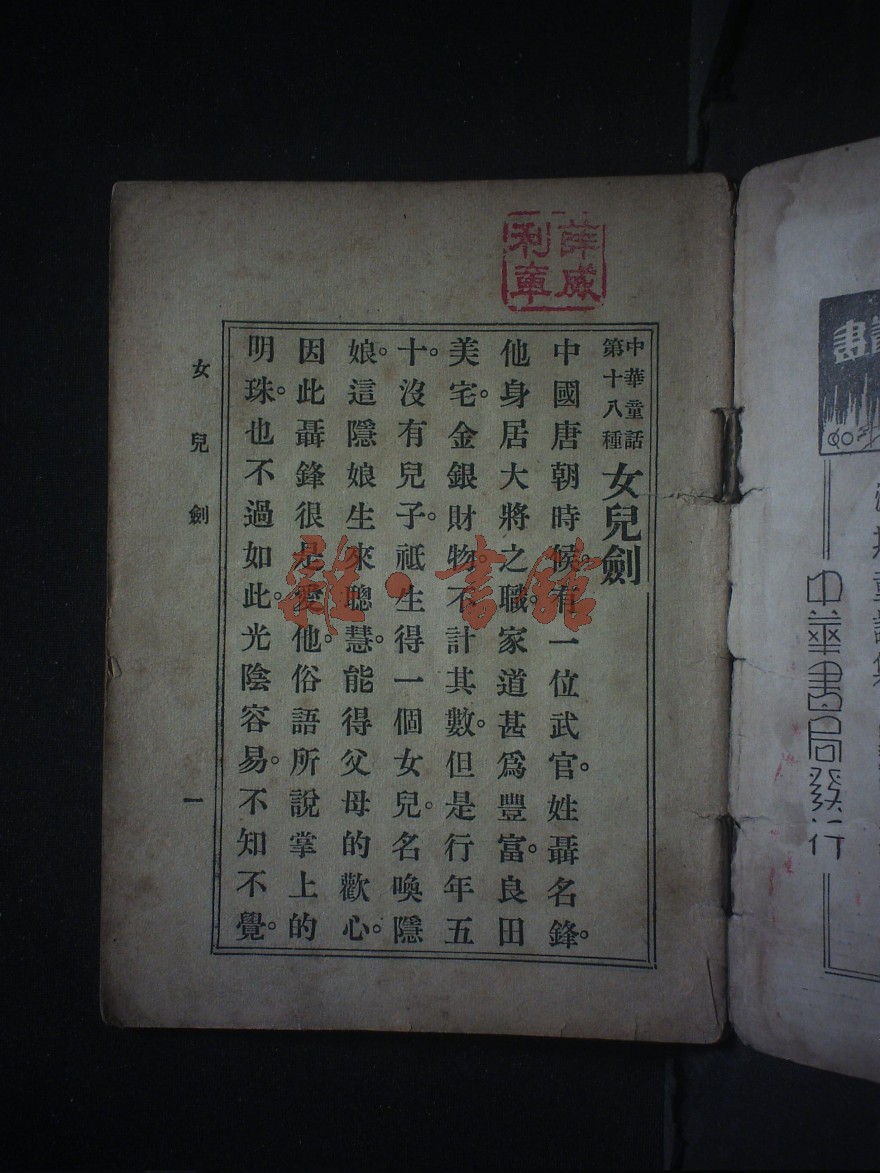 中華童話
第十八種
女兒劍
中國唐朝時候。有一位武官。姓聶名鋒。
他身居大將之職。家道甚爲豐富。良田
美宅。金銀財物。不計其數。但是行年五
十。沒有兒子。祇生得一個女兒。名喚隱
娘。這隱娘生來聰慧。能得父母的歡心。
因此聶鋒很是愛他。俗語所說掌上的
明珠。也不過如此。光陰容易。不知不覺。
女兒劍
一
薛威
利章
雜·書館
中華書局發行